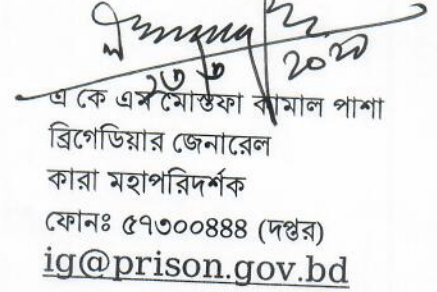 এ কে এম মোস্তফা কামাল পাশা
ব্রিগেডিয়ার জেনারেল
কারা মহাপরিদর্শক
ফোনঃ ৫৭৩০০৪৪৪ (দপ্তর)
ig@prison.gov.bd